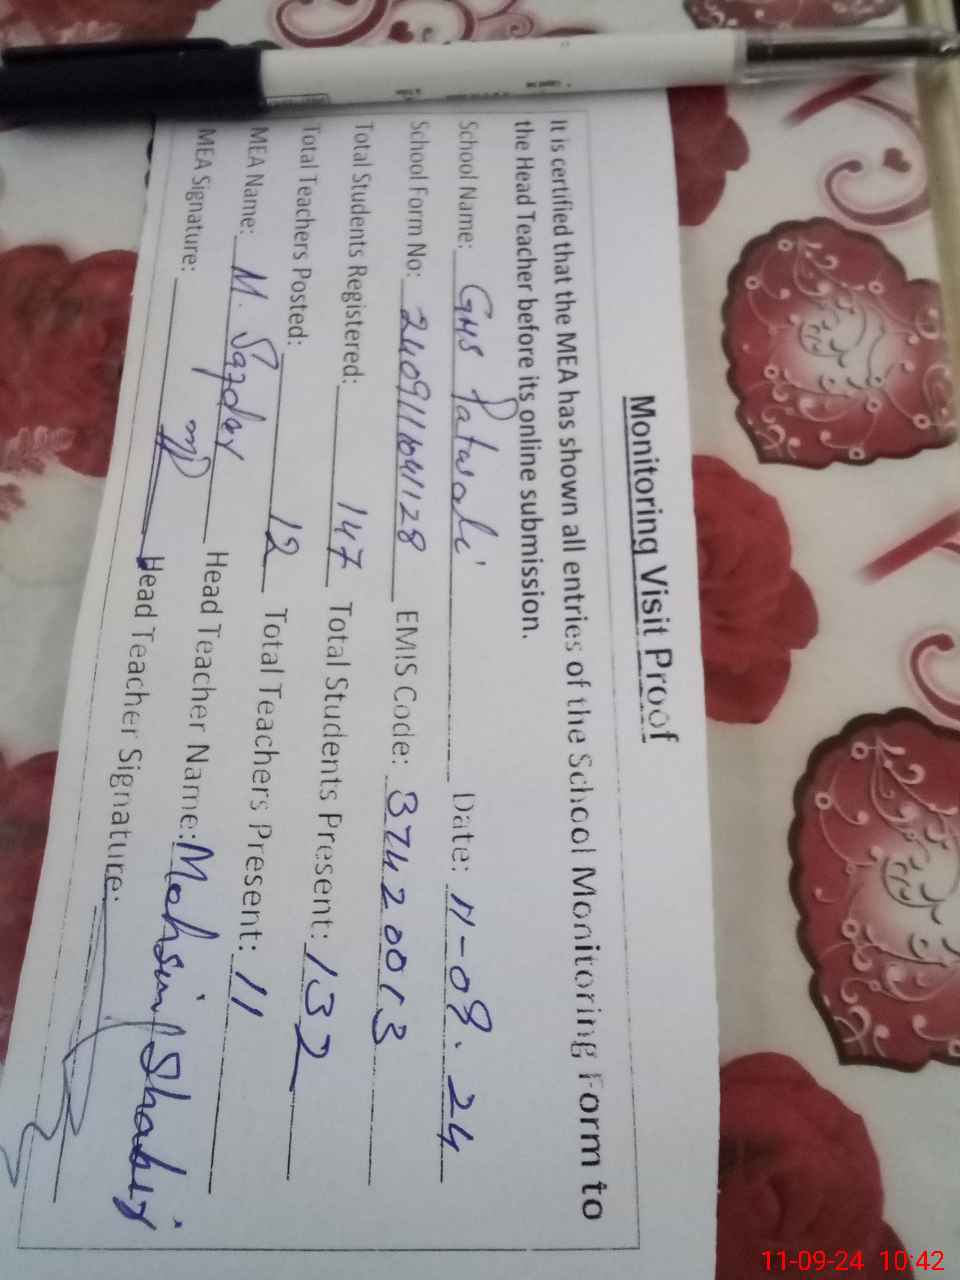 Monitoring Visit Proof
It is certified that the MEA has shown all entries of the School Monitoring Form to
the Head Teacher before its online submission.
School Name: GHS Patwali Date: 11-09.24
School Form No: 2409111041128 EMIS Code: 37420013
Total Students Registered: 147 Total Students Present: 132
Total Teachers Posted: 12 Total Teachers Present: 11
MEA Name: M. Safdar Head Teacher Name: Mohsin Shabir
MEA Signature: Head Teacher Signature:
11-09-24 10:42